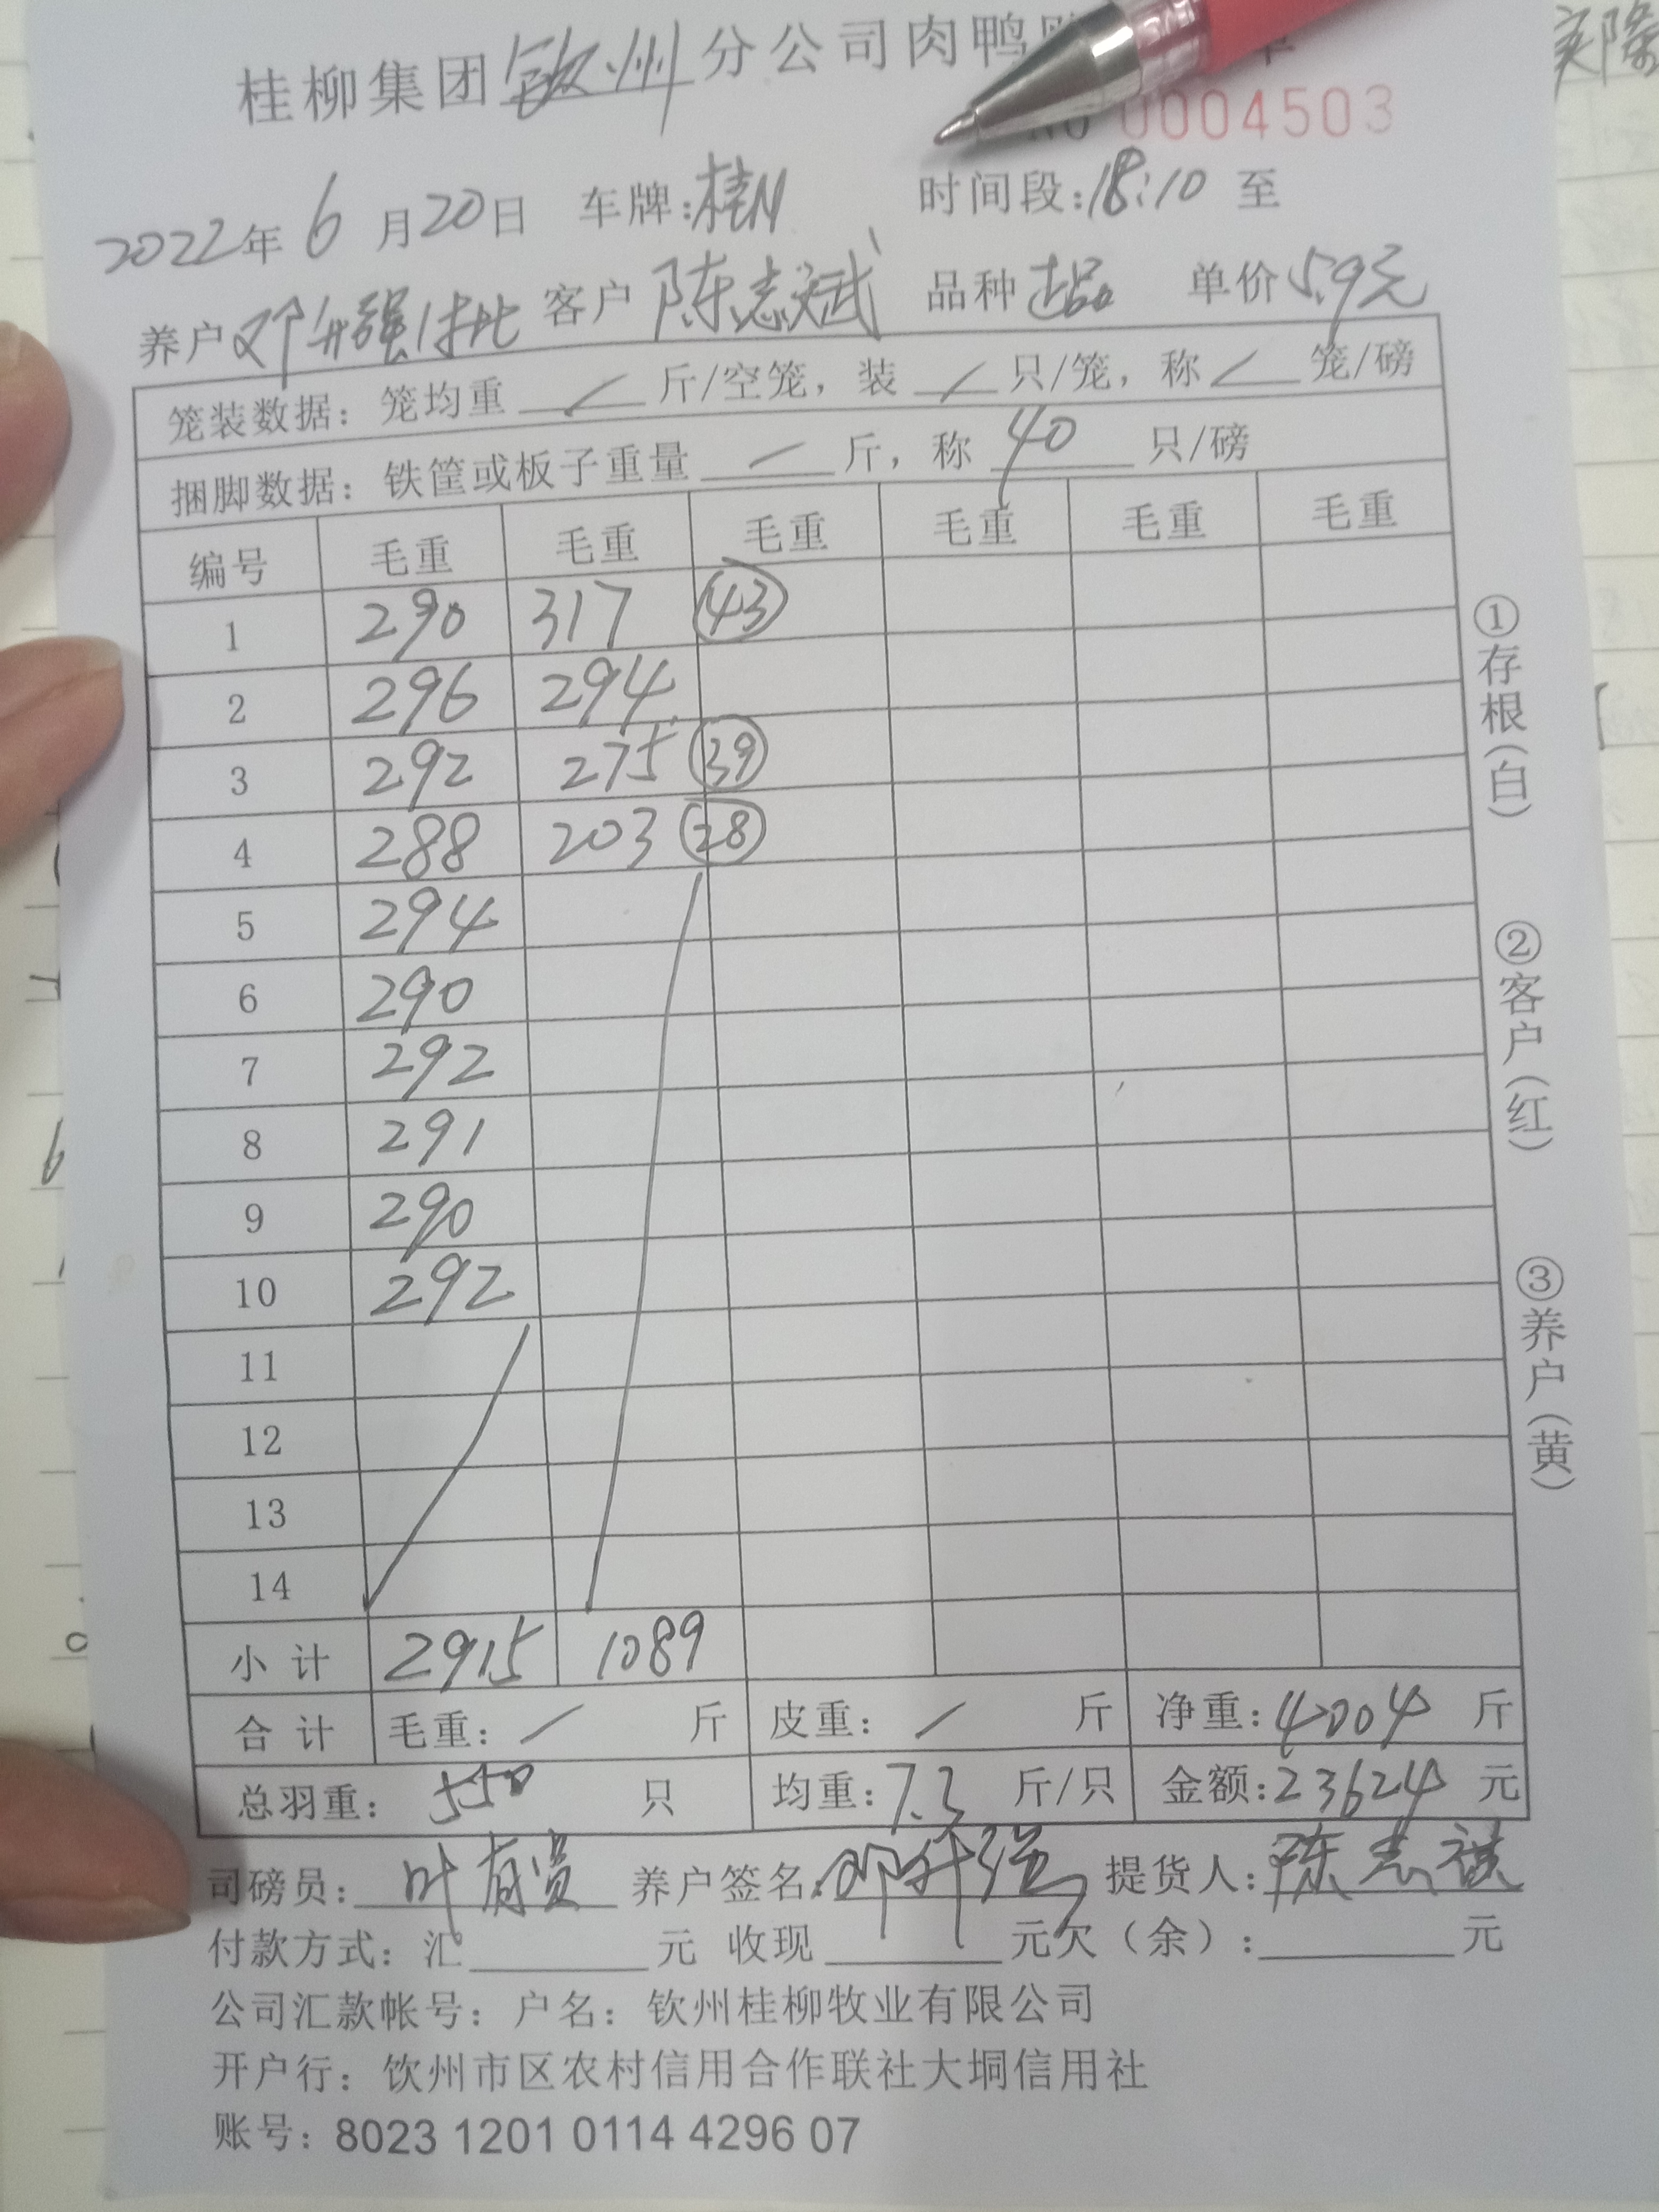 桂柳集团钦州分公司肉鸭
No 0004503
2022年6月20日 车牌:桂N 时间段:18:10 至
养户邓升强 客户陈志斌 品种 单价5.9元
笼装数据：笼均重 / 斤/空笼，装 / 只/笼，称 / 笼/磅
捆脚数据：铁筐或板子重量 / 斤，称 40 只/磅
编号 毛重 毛重 毛重 毛重 毛重 毛重
1 290 317 43
2 296 294
3 292 275 39
4 288 203 28
5 294
6 290
7 292
8 291
9 290
10 292
11
12
13
14
小计 2915 1089
合计 毛重：/ 斤 皮重：/ 斤 净重:4004 斤
总羽重：550 只 均重:7.3 斤/只 金额:23624 元
司磅员:叶 养户签名:邓升强 提货人:陈志
付款方式：汇 元 收现 元欠（余）: 元
公司汇款帐号：户名：钦州桂柳牧业有限公司
开户行：钦州市区农村信用合作联社大垌信用社
账号：8023 1201 0114 4296 07
①存根(白)
②客户(红)
③养户(黄)